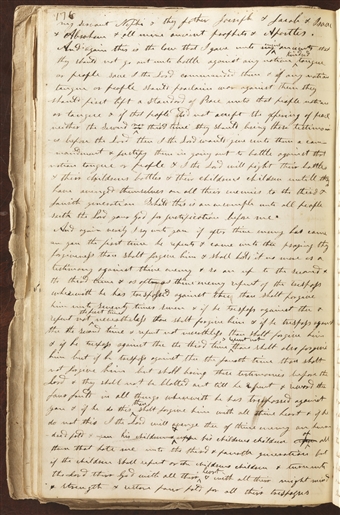 176
my servent Nephi & thy father Joseph & Jacob & Isaac
& Abraham & all mine ancient prophets & Apostles.
And again this is the law that I gave unto mine ancients that
they should not go out unto battle against any nation kindred tongue
or people save I the Lord commanded them & if any nation
tongue or people should proclaim war against them they
should first lift a standard of Peace unto that people nation
or tongue & if that people did not accept the offering of peace
neither the Second nor third time they should bring those testimonies
before the Lord then I the Lord would give unto them a com
mandment & justify them in going out to battle against that
nation tongue or people & I the Lord would fight their battles
& their childrens battles & their childrens children untill they
have avenged themselves on all their enemies to the third &
fourth generation Behold this is an ensample unto all people
saith the Lord your God for justification before me.
And again verily I say unto you if after thine enemy has come
upon thee the first time he repents & come unto thee praying thy
forgiveness thou shalt forgive him & shall hold it no more as a
testimony against thine enemy & so on unto the second &
the third time & as oft as thine enemy repent of the trespass
wherewith he has trespassed against thee thou shalt forgive
him unto seventy times seven & if he trespass against thee &
repent not the first time nevertheless thou shalt forgive him & if he trespass against
thee the second time & repent not nevertheless thou shalt forgive him
& if he trespass against thee the third time & repent not thou shalt also forgive
him but if he trespass against thee the fourth time thou shalt
not forgive him but shall bring these testimonies before the
Lord & they shall not be blotted out till he repent & reward thee
four fold in all things wherewith he has trespassed against
you & if he do this thou shalt forgive him with all thine heart & if he
do not this I the Lord will avenge thee of thine enemy an hun
dred fold & upon his children & upon his childrens children of all
them that hate me unto the third & fourth generation but
if the children shall repent or the childrens children & turn unto
the Lord their God with all their hearts & with all their might mind
& strength & restore four fold for all their trespasses